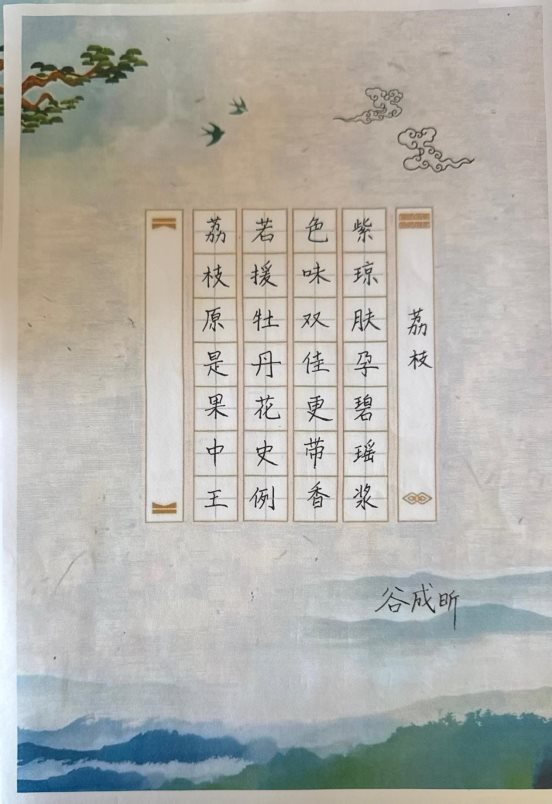 荔枝
紫琼肤孕碧瑶浆
色味双佳更带香
若援牡丹花史例
荔枝原是果中王
谷成昕